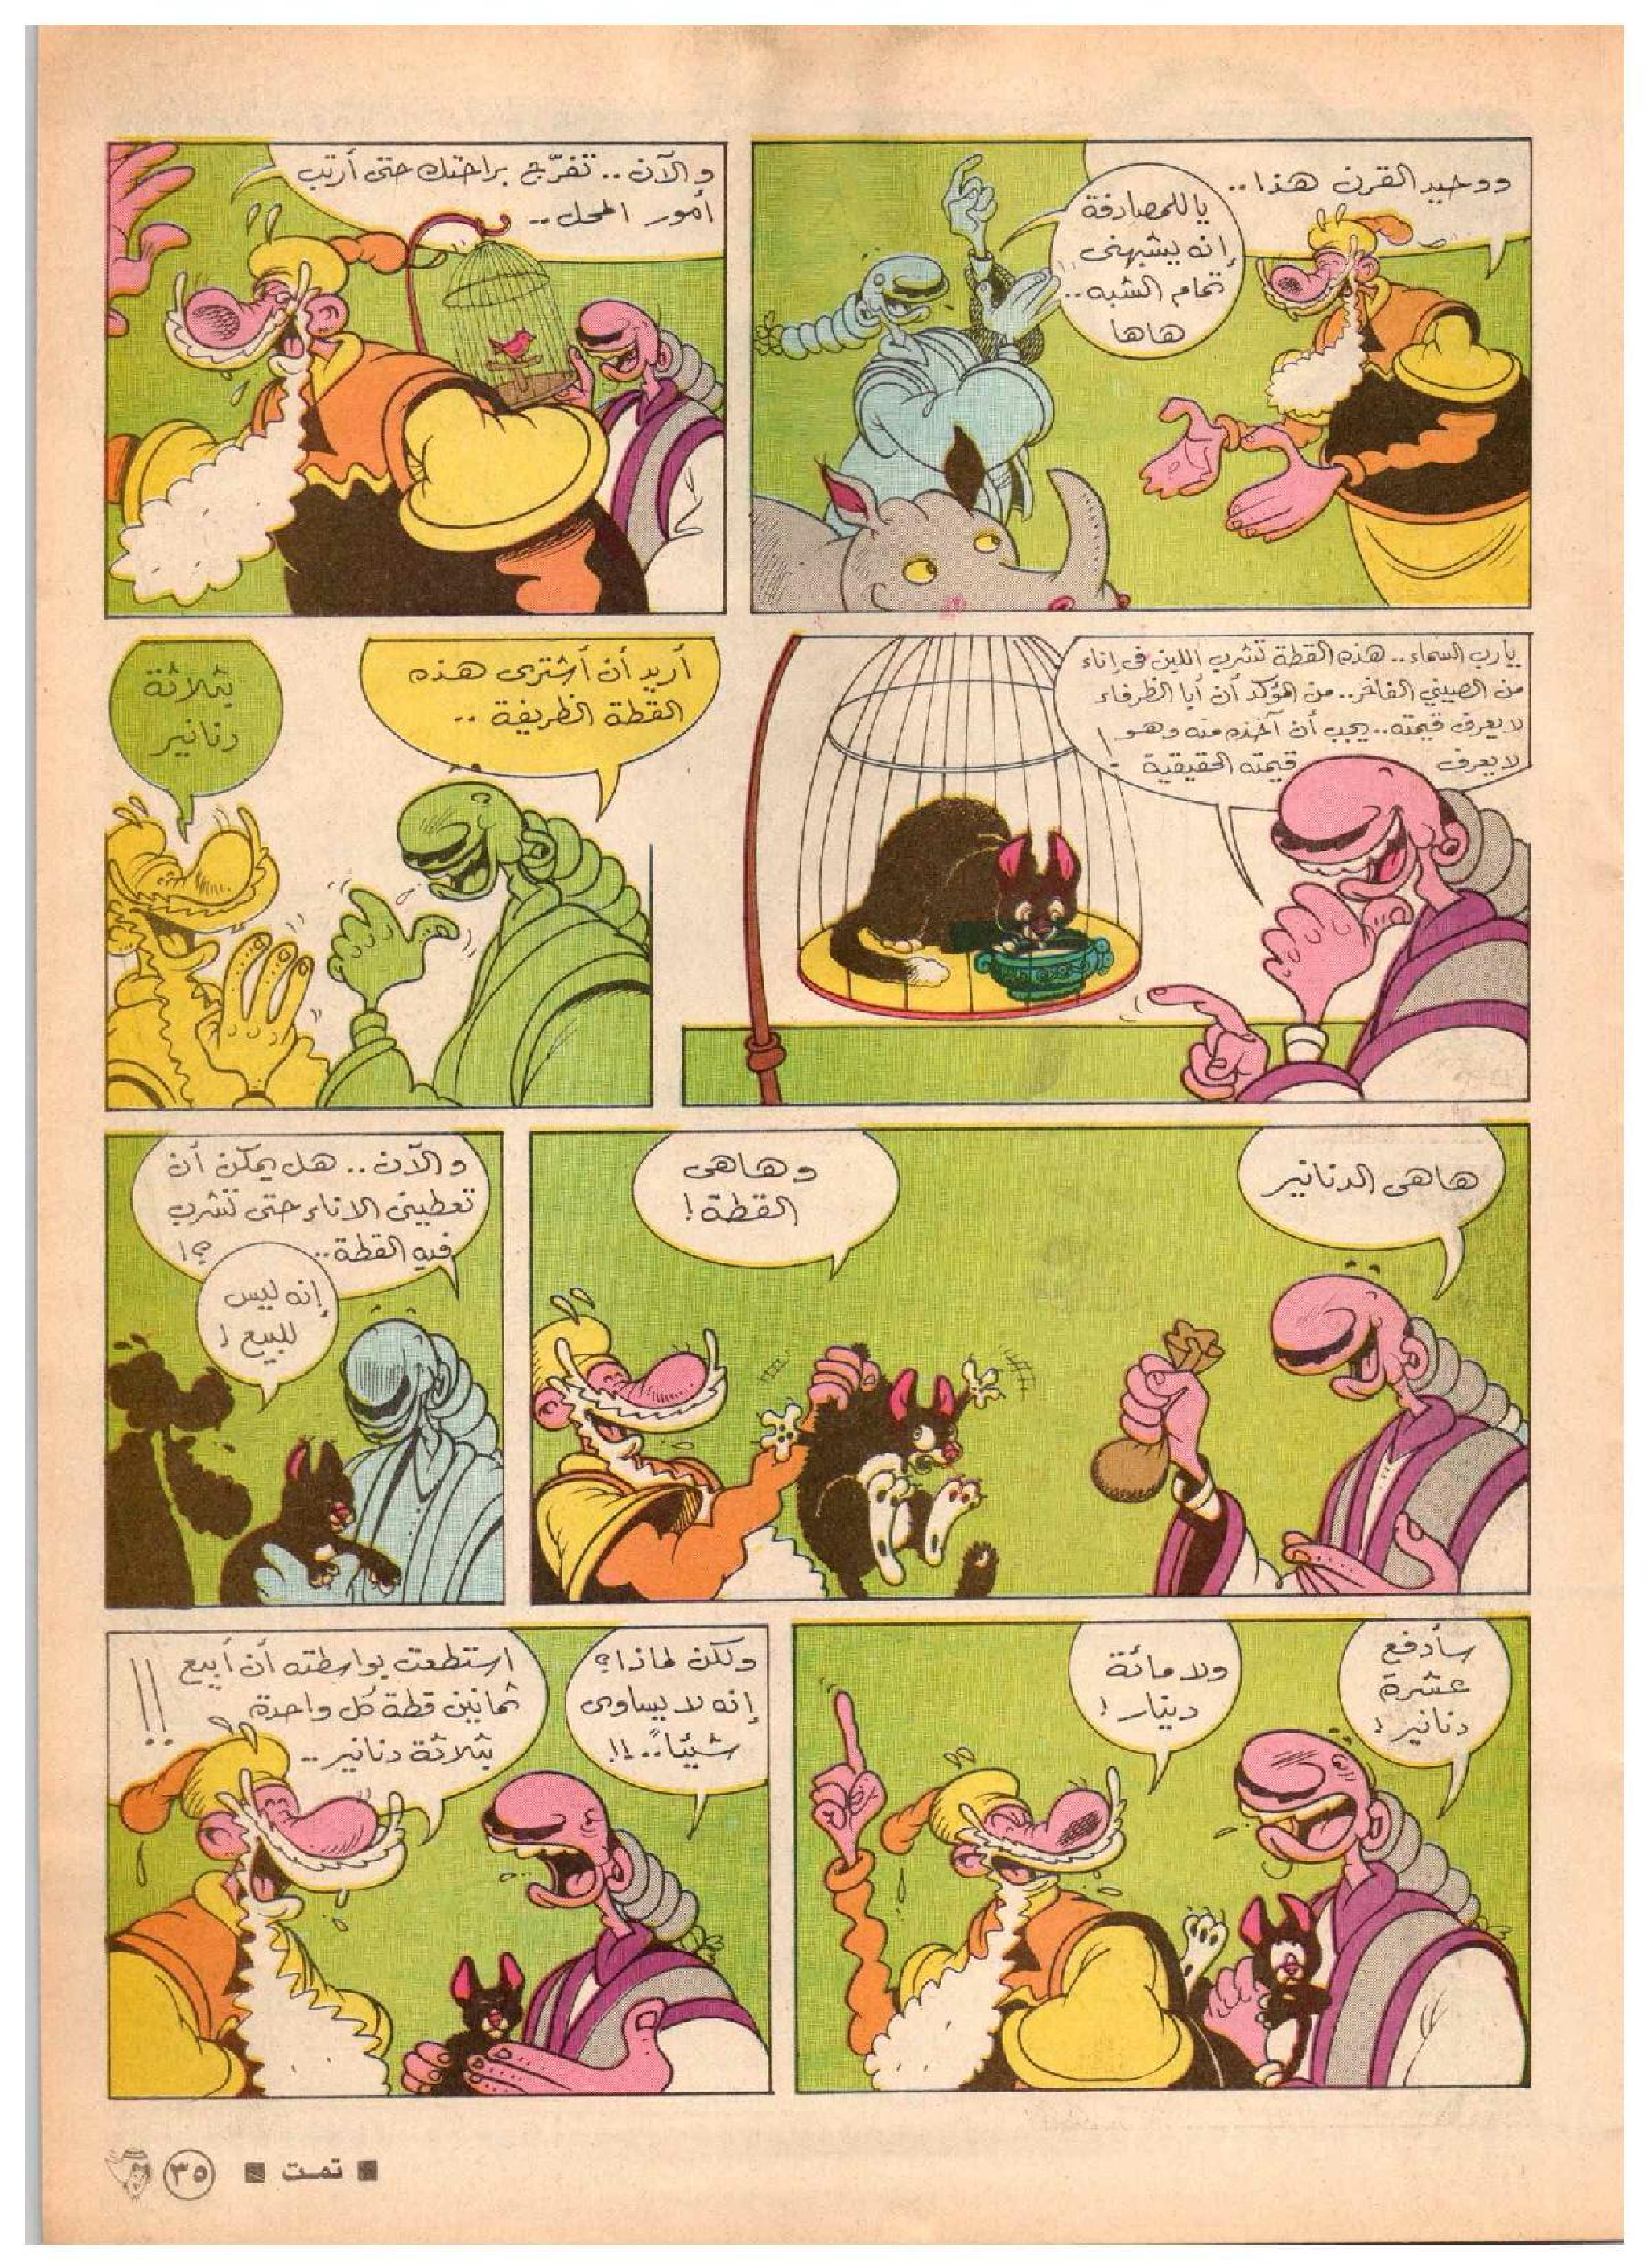 ووحيد القرن هذا..
ياللمصادفة
إنه يشبهنى
تمام الشبه..
هاها
والآن.. تفرّج براحتك حتى أرتب
أمور المحل..
يارب السماء.. هذه القطة تشرب اللبن فى إناء
من الصينى الفاخر.. من المؤكد أن أبا الظرفاء
لا يعرف قيمته.. يجب أن آخذه منه وهو
لا يعرف قيمته الحقيقية!
أريد أن أشترى هذه
القطة الظريفة..
بثلاثة
دنانير
هاهى الدنانير
وهاهى
القطة!
والآن.. هل يمكن أن
تعطينى الاناء حتى تشرب
فيه القطة.. ؟!
إنه ليس
للبيع!
سأدفع
عشرة
دنانير!
ولا مائة
دينار!
ولكن لماذا؟
إنه لا يساوى
شيئاً..!!
استطعت بواسطته أن أبيع
ثمانين قطة كل واحدة
بثلاثة دنانير.. !!
■ تمت ■ ٣٥